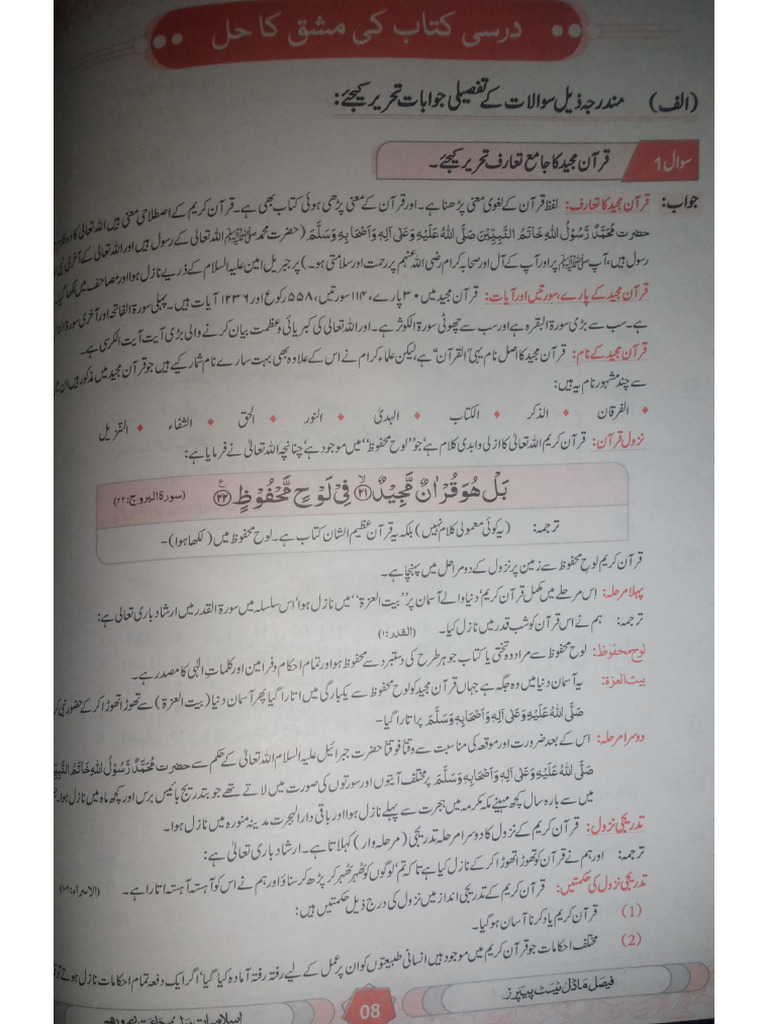 درسی کتاب کی مشق کا حل
(الف) مندرجہ ذیل سوالات کے تفصیلی جوابات تحریر کیجئے:
سوال 1 قرآن مجید کا جامع تعارف تحریر کیجئے۔
جواب: قرآن مجید کا تعارف: لفظ قرآن کے لغوی معنی پڑھنا ہے۔ اور قرآن کے معنی پڑھی ہوئی کتاب بھی ہے۔ قرآن کریم کے اصطلاحی معنی ہیں اللہ تعالیٰ کا وہ
حضرت مُحَمَّدٌ رَّسُوْلُ اللهِ خَاتَمُ النَّبِيّٖنَ صَلَّى اللهُ عَلَيْهِ وَعَلٰى اٰلِهٖ وَاَصْحَابِهٖ وَسَلَّمَ (حضرت محمد ﷺ اللہ تعالیٰ کے رسول ہیں اور اللہ تعالیٰ کے آخری نبی
رسول ہیں، آپ ﷺ پر اور آپ کے آل اور صحابہ کرام رضی اللہ عنہم پر رحمت اور سلامتی ہو۔) پر جبریل امین علیہ السلام کے ذریعے نازل ہوا اور مصاحف میں لکھا گیا
قرآن مجید کے پارے، سورتیں اور آیات: قرآن مجید میں ۳۰ پارے، ۱۱۴ سورتیں، ۵۵۸ رکوع اور ۶۲۳۶ آیات ہیں۔ پہلی سورۃ الفاتحہ اور آخری سورۃ
ہے۔ سب سے بڑی سورۃ البقرہ ہے اور سب سے چھوٹی سورۃ الکوثر ہے۔ اور اللہ تعالیٰ کی کبریائی و عظمت بیان کرنے والی بڑی آیت آیت الکرسی ہے۔
قرآن مجید کے نام: قرآن مجید کا اصل نام یہی "القرآن" ہے لیکن علماء کرام نے اس کے علاوہ بھی بہت سارے نام شمار کیے ہیں جو قرآن مجید میں مذکور ہیں ان میں
سے چند مشہور نام یہ ہیں:
♦ الفرقان ♦ الذکر ♦ الکتاب ♦ الہدیٰ ♦ النور ♦ الحق ♦ الشفاء ♦ التنزیل
نزول قرآن: قرآن کریم اللہ تعالیٰ کا ازلی و ابدی کلام ہے، جو ''لوح محفوظ'' میں موجود ہے، چنانچہ اللہ تعالیٰ نے فرمایا ہے:
بَلْ هُوَ قُرْاٰنٌ مَّجِيْدٌ ﴿۲۱﴾ فِيْ لَوْحٍ مَّحْفُوْظٍ ﴿۲۲﴾ (سورۃ البروج: ۲۲)
ترجمہ: (یہ کوئی معمولی کلام نہیں) بلکہ یہ قرآن عظیم الشان کتاب ہے۔ لوح محفوظ میں (لکھا ہوا)-
قرآن کریم لوح محفوظ سے زمین پر نزول کے دو مراحل میں پہنچا ہے۔
پہلا مرحلہ: اِس مرحلے میں مکمل قرآن کریم، دنیا والے آسمان پر ''بیت العزۃ'' میں نازل ہوا، اس سلسلہ میں سورۃ القدر میں ارشاد باری تعالیٰ ہے:
ترجمہ: ہم نے اس قرآن کو شب قدر میں نازل کیا۔ (القدر: ۱)
لوح محفوظ: لوح محفوظ سے مراد وہ تختی یا کتاب جو ہر طرح کی دستبرد سے محفوظ ہو اور تمام احکام و فرامین اور کلمات الٰہی کا مصدر ہے۔
بیت العزۃ: یہ آسمان دنیا میں وہ جگہ ہے جہاں قرآن مجید کو لوح محفوظ سے یکبارگی میں اتارا گیا پھر آسمان دنیا (بیت العزۃ) سے تھوڑا تھوڑا کر کے حضور نبی
صَلَّى اللهُ عَلَيْهِ وَعَلٰى اٰلِهٖ وَاَصْحَابِهٖ وَسَلَّمَ پر اتارا گیا-
دوسرا مرحلہ: اس کے بعد ضرورت اور موقعہ کی مناسبت سے وقتاً فوقتاً حضرت جبرائیل علیہ السلام اللہ تعالیٰ کے حکم سے حضرت مُحَمَّدٌ رَّسُوْلُ اللهِ خَاتَمُ
صَلَّى اللهُ عَلَيْهِ وَعَلٰى اٰلِهٖ وَاَصْحَابِهٖ وَسَلَّمَ پر مختلف آیتوں اور سورتوں کی صورت میں لاتے تھے جو بتدریج بائیس برس اور کچھ ماہ میں نازل ہوا۔
میں سے بارہ سال کچھ مہینے مکہ مکرمہ میں ہجرت سے پہلے نازل ہوا اور باقی دار الہجرت مدینہ منورہ میں نازل ہوا۔
تدریجی نزول: قرآن کریم کے نزول کا دوسرا مرحلہ تدریجی (مرحلہ وار) کہلاتا ہے۔ ارشاد باری تعالیٰ ہے:
ترجمہ: اور ہم نے قرآن کو تھوڑا تھوڑا کر کے نازل کیا ہے تاکہ تم، لوگوں کو ٹھہر ٹھہر کر پڑھ کر سناؤ اور ہم نے اس کو آہستہ آہستہ اتارا ہے۔ (الاسراء: ۱۰۶)
تدریجی نزول کی حکمتیں: قرآن کریم کے تدریجی انداز میں نزول کی درج ذیل حکمتیں ہیں:
(1) قرآن کریم یاد کرنا آسان ہو گیا۔
(2) مختلف احکامات جو قرآن کریم میں موجود ہیں انسانی طبیعتوں کو ان پر عمل کے لیے رفتہ رفتہ آمادہ کیا گیا، اگر ایک دفعہ تمام احکامات نازل ہوتے تو
فیصل ماڈل ٹیسٹ پیپرز
08